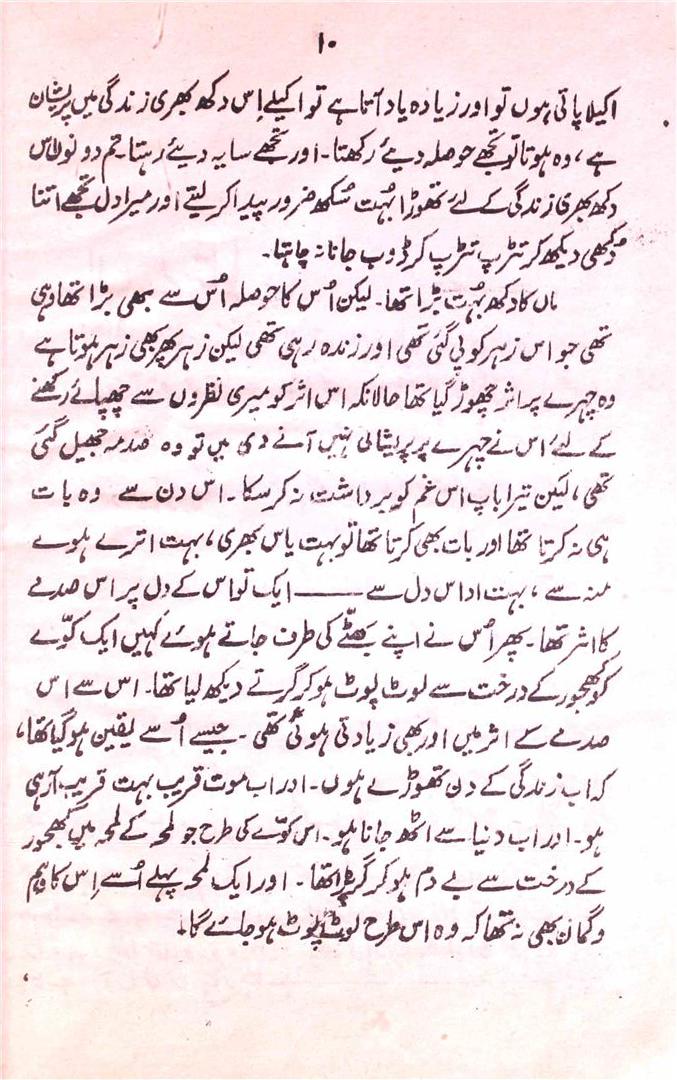 ۱۰
اکیلا پاتی ہوں تو اور زیادہ یاد آتا ہے تو اکیلے اِس دکھ بھری زندگی میں پریشان
ہے، وہ ہوتا تو تجھے حوصلہ دیئے رکھتا۔ اور تجھے سایہ دیئے رہتا۔ تم دونوں اس
دکھ بھری زندگی کے لئے تھوڑا بہُت سُکھ ضرور پیدا کر لیتے اور میرا دل تجھے اتنا
دُکھی دیکھ کر تڑپ تڑپ کر ڈوب جانا نہ چاہتا۔
ماں کا دکھ بہُت بڑا تھا۔ لیکن اُس کا حوصلہ اُس سے بھی بڑا تھا وہی
تھی جو اس زہر کو پی گئی تھی اور زندہ رہی تھی لیکن زہر پھر بھی زہر ہوتا ہے
وہ چہرے پر اثر چھوڑ گیا تھا حالانکہ اس اثر کو میری نظروں سے چھپائے رکھنے
کے لئے اس نے چہرے پر پریشانی نہیں آنے دی میں تو وہ صدمہ جھیل گئی
تھی، لیکن تیرا باپ اس غم کو برداشت نہ کر سکا۔ اس دن سے وہ بات
ہی نہ کرتا تھا اور بات بھی کرتا تھا تو بہت یاس بھری، بہت اترے ہوے
منہ سے، بہت اداس دل سے ——— ایک تو اس کے دل پر اس صدمے
کا اثر تھا۔ پھر اُس نے اپنے بھٹے کی طرف جاتے ہوئے کہیں ایک کوّے
کو کھجور کے درخت سے لوٹ پوٹ ہو کر گرتے دیکھ لیا تھا۔ اس سے اس
صدمے کے اثر میں اور بھی زیادتی ہوئی تھی۔ جیسے اُسے یقین ہو گیا تھا،
کہ اب زندگی کے دن تھوڑے ہوں۔ اور اب موت قریب بہت قریب آ رہی
ہو۔ اور اب دنیا سے اٹھ جانا ہو۔ اس کوّے کی طرح جو لمحہ کے لمحہ میں کھجور
کے درخت سے بے دم ہو کر گر پڑا تھا۔ اور ایک لمحہ پہلے اُسے اِس کا وہم
و گمان بھی نہ تھا کہ وہ اس طرح لوٹ پوٹ ہو جائے گا۔